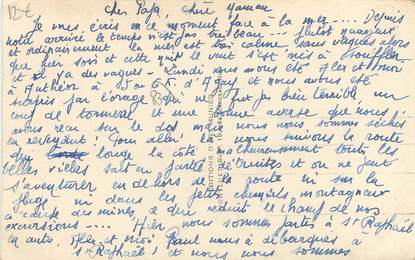 12€
Cher Papa chère Maman
Je vous écris en ce moment face à la mer .... Depuis
notre arrivée le temps n'est pas très beau .... plutôt nuageux
et ordinairement la mer est bien calme, sans vagues alors
que hier soir et cette nuit le vent s'est mis à souffler
et il y a des vagues - Lundi nous avons été Alex et moi
à Anthéor à 5 d'Agay et nous avons été
surpris par l'orage fut pas bien terrible, un
coup de tonnerre et une bonne averse que nous
avons reçu sur le dos mais nous nous sommes séchés
en revenant ! Pour aller nous suivons la route
qui longe la côte malheureusement toutes les
belles villas sont en parties détruites et on ne peut
s'aventurer en dehors de la route ni sur la
plage ni dans les petits chemins montagneux
à cause des mines, ce qui réduit le champ de nos
excursions .... Hier nous sommes partis à St Raphaël
en auto, Alex et moi Paul nous a débarqués à
St Raphaël, et nous nous sommes